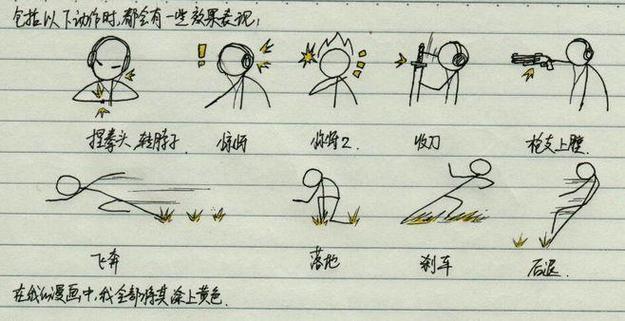 包括以下动作时,都会有一些效果表现:
捏拳头,转脖子 惊讶 惊讶2. 收刀 枪支上膛.
飞奔 落地 刹车 后退.
在我的漫画中,我全部将其涂上黄色.